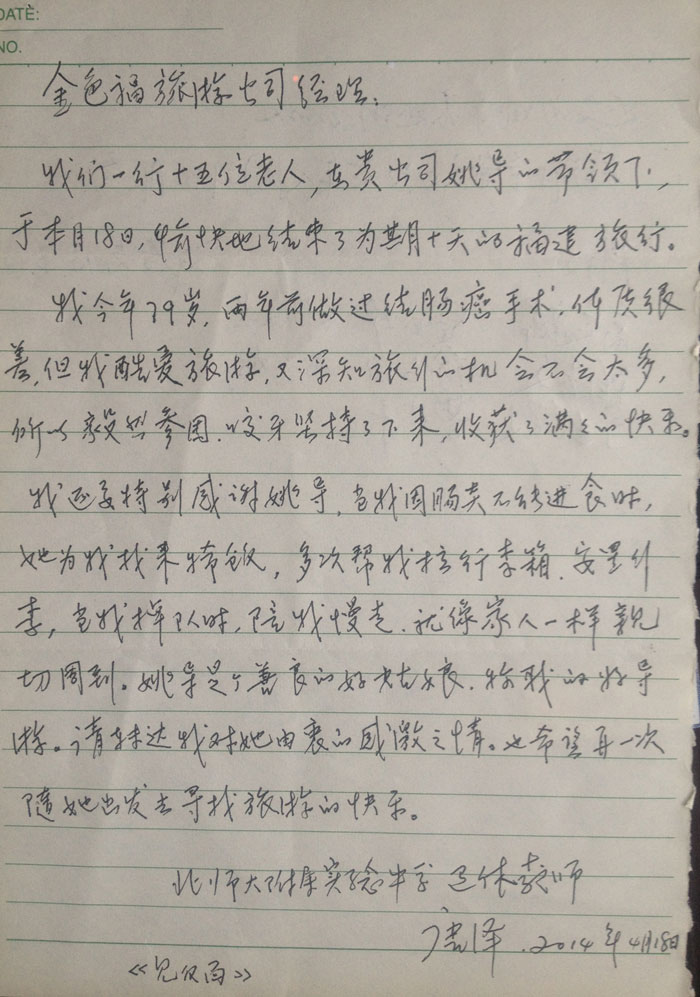 DATE:
NO.
金色福旅游公司经理：
我们一行十五位老人，在贵公司姚导的带领下，
于本月18日，愉快地结束了为期十天的福建旅行。
我今年79岁，两年前做过结肠癌手术，体质很
差，但我酷爱旅游，又深知旅行的机会不会太多，
所以毅然参团，咬牙坚持了下来，收获了满满的快乐。
我还要特别感谢姚导，当我因肠炎不能进食时，
她为我找来稀饭，多次帮我拉行李箱、安置行
李，当我掉队时，陪我慢走，就像家人一样亲
切周到。姚导是个善良的好姑娘，称职的好导
游。请转达我对她由衷的感激之情。也希望再一次
随她出发去寻找旅游的快乐。
北师大附属实验中学 退休教师
唐泽，2014年4月18日
《见反面》